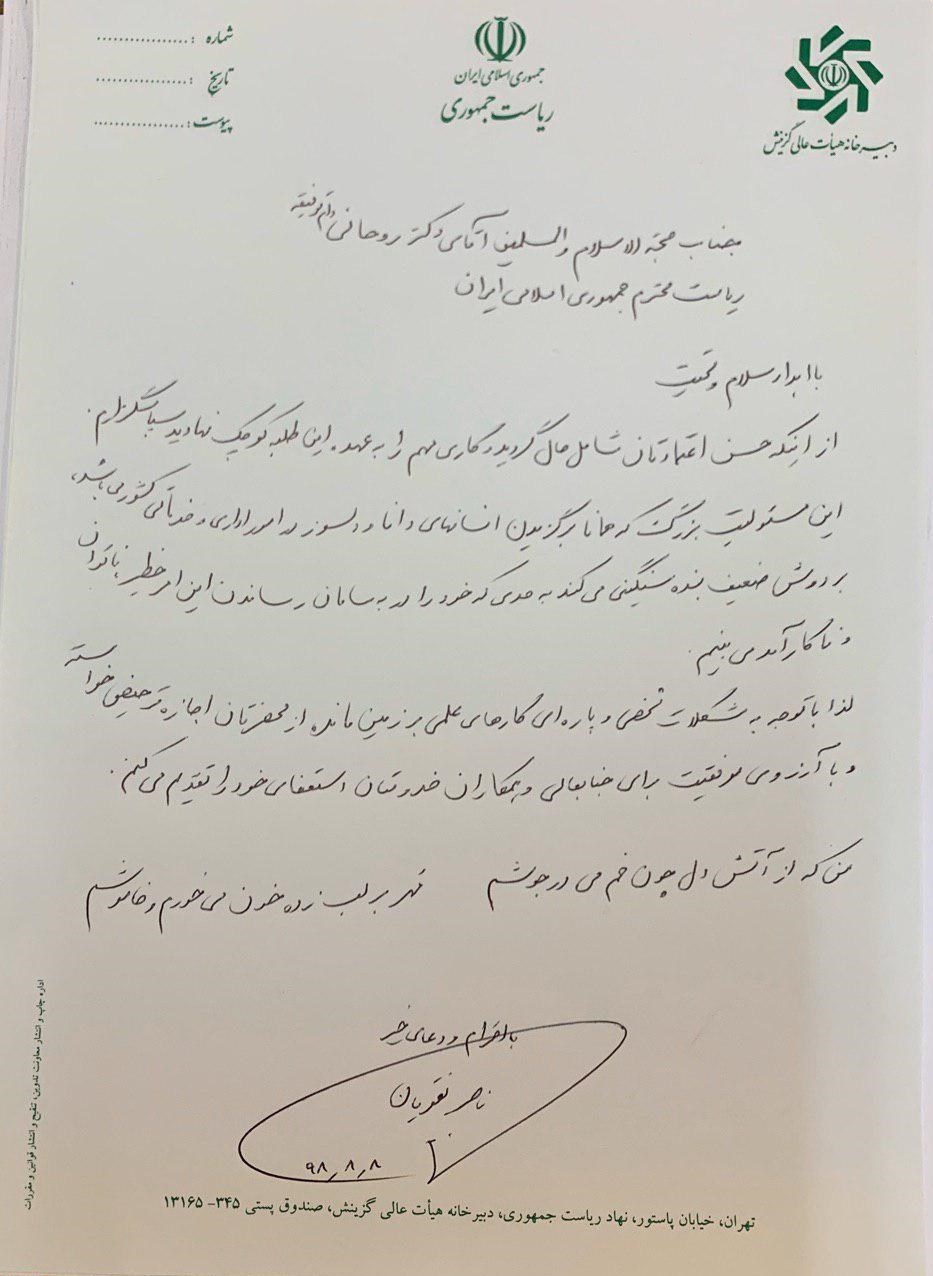 شماره : ..................
تاریخ : ..................
پیوست: ..................
جمهوری اسلامی ایران
ریاست جمهوری
دبیرخانه هیأت عالی گزینش
جناب حجة الاسلام والمسلمین آقای دکتر روحانی دام توفیقه
ریاست محترم جمهوری اسلامی ایران
با اهدا سلام و تحیت
از اینکه حسن اعتمادتان شامل حال گردید و کاری مهم را به عهده این طلبه کوچک نهادید سپاسگزارم.
این مسئولیت بزرگ که همانا برگزیدن انسانهای دانا و دلسوز در امور اداری و خدماتی کشور می باشد،
بر دوش ضعیف بنده سنگینی می کند به حدی که خود را در به سامان رساندن این امر خطیر ناتوان
و ناکارآمد می بینم.
لذا با توجه به مشکلات شخصی و پاره ای کارهای علمی بر زمین مانده از محضرتان اجازه مرخصی خواسته
و با آرزوی موفقیت برای جنابعالی و همکاران خدومتان استعفای خود را تقدیم می کنم.
من که از آتش دل چون خم می در جوشم مهر بر لب زده خون می خورم و خاموشم
با احترام و دعای خیر
ناصر نقویان
۹۸٫۸٫۸
تهران، خیابان پاستور، نهاد ریاست جمهوری، دبیرخانه هیأت عالی گزینش، صندوق پستی ۳۴۵- ۱۳۱۶۵
اداره چاپ و انتشار معاونت تدوین، تنقیح و انتشار قوانین و مقررات